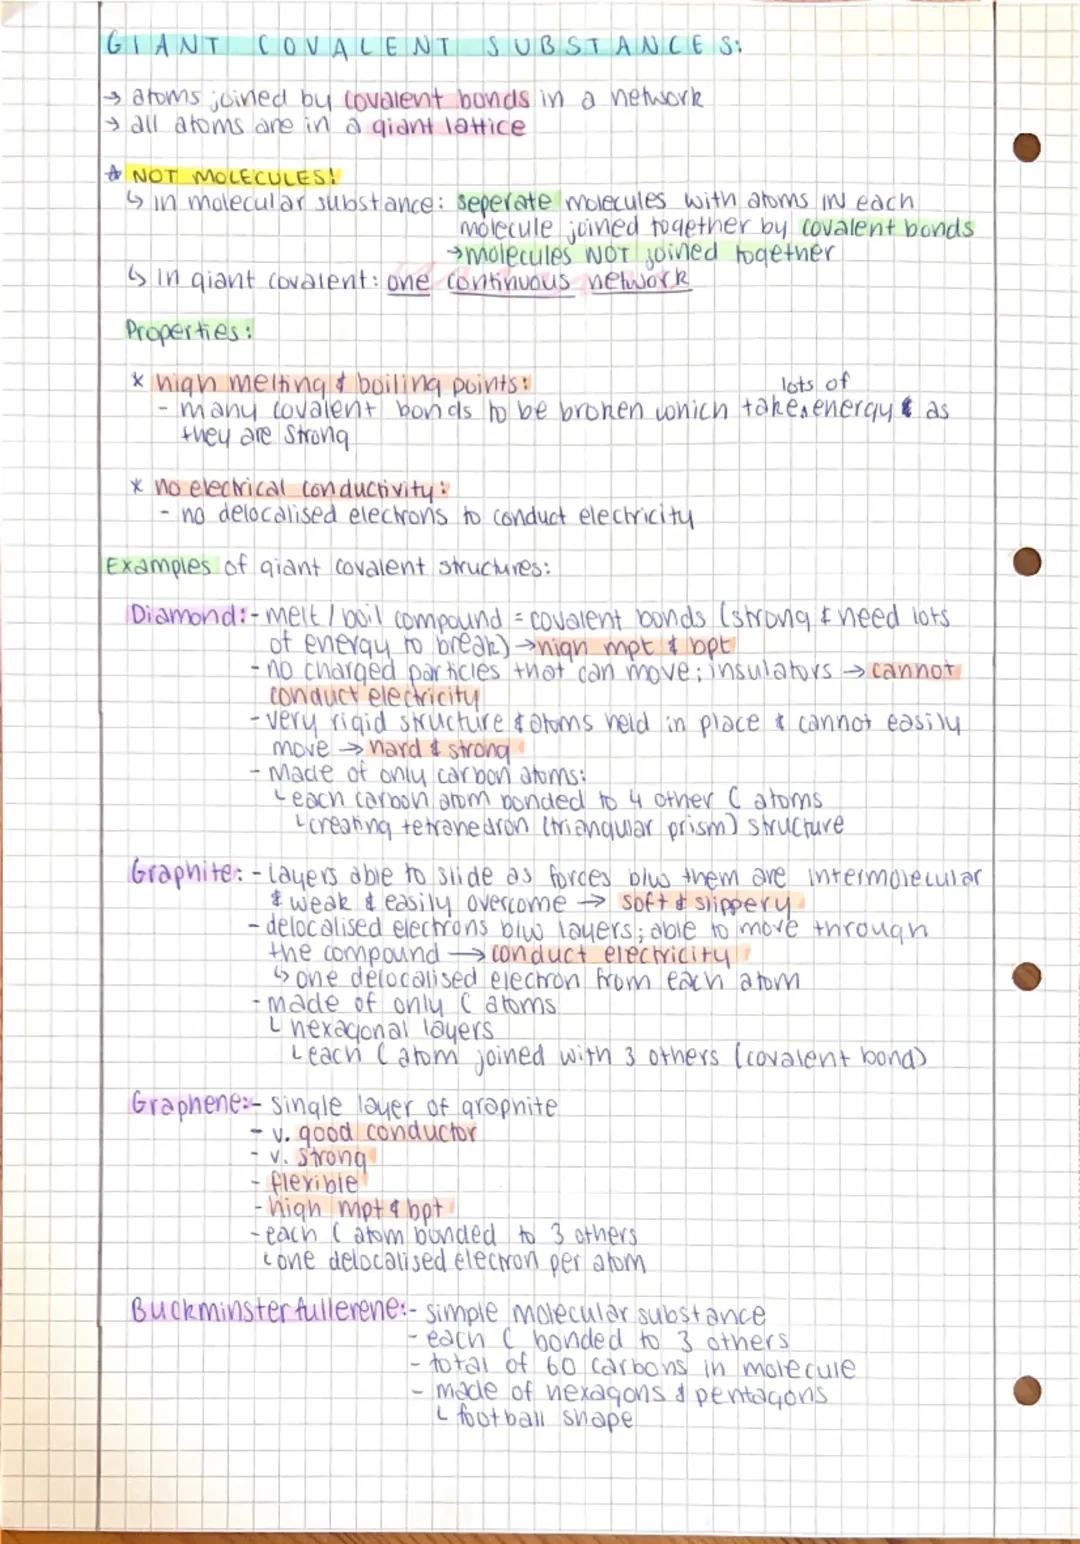 GIANT COVALENT SUBSTANCES:
→ atoms joined by covalent bonds in a network
→ all atoms are in a giant lattice
☆ NOT MOLECULES!
↳ in molecular substance: seperate molecules with atoms in each
molecule joined together by covalent bonds
→molecules NOT joined together
↳ in giant covalent: one continuous network
Properties:
* high melting & boiling points:
lots of
- many covalent bonds to be broken which take energy & as
they are strong
* no electrical conductivity:
- no delocalised electrons to conduct electricity
Examples of giant covalent structures:
Diamond:- melt / boil compound = covalent bonds (strong & need lots
of energy to break) → high mpt & bpt
- no charged particles that can move; insulators → cannot
conduct electricity
- very rigid structure & atoms held in place & cannot easily
move → hard & strong
- Made of only carbon atoms:
↳ each carbon atom bonded to 4 other C atoms
↳ creating tetrahedron (triangular prism) structure
Graphite: - layers able to slide as forces b/w them are intermolecular
& weak & easily overcome → soft & slippery
- delocalised electrons b/w layers; able to move through
the compound → conduct electricity
↳ one delocalised electron from each atom
- made of only C atoms
↳ hexagonal layers
↳ each C atom joined with 3 others (covalent bond)
Graphene:- single layer of graphite
- v. good conductor
- v. strong
- flexible
- high mpt & bpt
- each C atom bonded to 3 others
↳ one delocalised electron per atom
Buckminsterfullerene:- simple molecular substance
- each C bonded to 3 others
- total of 60 carbons in molecule
- made of hexagons & pentagons
↳ football shape